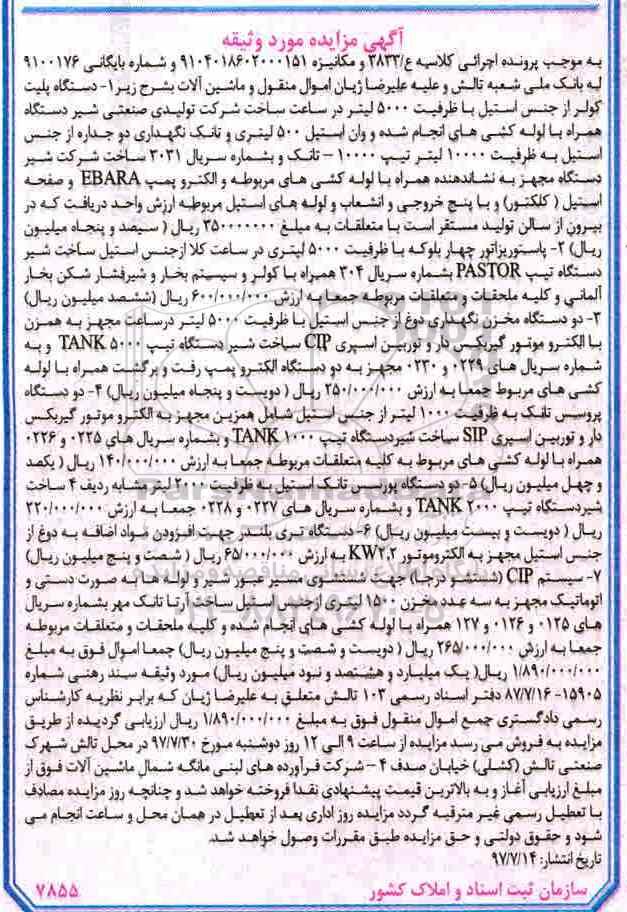 آگهی مزایده مورد وثیقه
به موجب پرونده اجرائی کلاسه ع/۳۸۳۳ و مکانیزه ۹۱۰۴۰۱۸۶۰۲۰۰۰۱۵۱ و شماره بایگانی ۹۱۰۰۱۷۶
له بانک ملی شعبه تالش و علیه علیرضا ژیان اموال منقول و ماشین آلات بشرح زیر ۱- دستگاه پلیت
کولر از جنس استیل با ظرفیت ۵۰۰۰ لیتر در ساعت ساخت شرکت تولیدی صنعتی شیر دستگاه
همراه با لوله کشی های انجام شده و وان استیل ۵۰۰ لیتری و تانک نگهداری دو جداره از جنس
استیل به ظرفیت ۱۰۰۰۰ لیتر تیپ ۱۰۰۰۰ – تانک و بشماره سریال ۳۰۳۱ ساخت شرکت شیر
دستگاه مجهز به نشاندهنده همراه با لوله کشی های مربوطه و الکترو پمپ EBARA و صفحه
استیل ( کلکتور) و با پنج خروجی و انشعاب و لوله های استیل مربوطه ارزش واحد دریافت که در
بیرون از سالن تولید مستقر است با متعلقات به مبلغ ۳۵۰۰۰۰۰۰۰ ریال ( سیصد و پنجاه میلیون
ریال) ۲- پاستوریزاتور چهار بلوکه با ظرفیت ۵۰۰۰ لیتری در ساعت کلا ازجنس استیل ساخت شیر
دستگاه تیپ PASTOR بشماره سریال ۳۰۴ همراه با کولر و سیستم بخار و شیرفشار شکن بخار
آلمانی و کلیه ملحقات و متعلقات مربوطه جمعا به ارزش ۶۰۰/۰۰۰/۰۰۰ ریال (ششصد میلیون ریال)
۳- دو دستگاه مخزن نگهداری دوغ از جنس استیل با ظرفیت ۵۰۰۰ لیتر درساعت مجهز به همزن
با الکترو موتور گیربکس دار و توربین اسپری CIP ساخت شیر دستگاه تیپ TANK ۵۰۰۰ و به
شماره سریال های ۰۲۲۹ و ۰۲۳۰ مجهز به دو دستگاه الکترو پمپ رفت و برگشت همراه با لوله
کشی های مربوط جمعا به ارزش ۲۵۰/۰۰۰/۰۰۰ ریال ( دویست و پنجاه میلیون ریال) ۴- دو دستگاه
پروسس تانک به ظرفیت ۱۰۰۰ لیتر از جنس استیل شامل همزین مجهز به الکترو موتور گیربکس
دار و توربین اسپری SIP ساخت شیردستگاه تیپ TANK ۱۰۰۰ و بشماره سریال های ۰۲۲۵ و ۰۲۲۶
همراه با لوله کشی های مربوط به کلیه متعلقات مربوطه جمعا به ارزش ۱۴۰/۰۰۰/۰۰۰ ریال ( یکصد
و چهل میلیون ریال) ۵- دو دستگاه پوررسس تانک استیل به ظرفیت ۲۰۰۰ لیتر مشابه ردیف ۴ ساخت
شیردستگاه تیپ TANK ۲۰۰۰ و بشماره سریال های ۰۲۲۷ و ۰۲۲۸ جمعا به ارزش ۲۲۰/۰۰۰/۰۰۰
ریال ( دویست و بیست میلیون ریال) ۶- دستگاه تری بلندر جهت افزودن مواد اضافه به دوغ از
جنس استیل مجهز به الکتروموتور KW۲.۲ به ارزش ۶۵/۰۰۰/۰۰۰ ریال ( شصت و پنج میلیون ریال)
۷- سیستم CIP (شستشو درجا) جهت شستشوی مسیر عبور شیر و لوله ها به صورت دستی و
اتوماتیک مجهز به سه عدد مخزن ۱۵۰۰ لیتری ازجنس استیل ساخت آرتا تانک مهر بشماره سریال
های ۰۱۲۵ و ۰۱۲۶ و ۱۲۷ همراه با لوله کشی های انجام شده و کلیه ملحقات و متعلقات مربوطه
جمعا به ارزش ۲۶۵/۰۰۰/۰۰۰ ریال ( دویست و شصت و پنج میلیون ریال) جمعا اموال فوق به مبلغ
۱/۸۹۰/۰۰۰/۰۰۰ ریال( یک میلیارد و هشتصد و نود میلیون ریال) مورد وثیقه سند رهنی شماره
۱۵۹۰۵- ۸۷/۷/۱۶ دفتر اسناد رسمی ۱۰۳ تالش متعلق به علیرضا ژیان که برابر نظریه کارشناس
رسمی دادگستری جمع اموال منقول فوق به مبلغ ۱/۸۹۰/۰۰۰/۰۰۰ ریال ارزیابی گردیده از طریق
مزایده به فروش می رسد مزایده از ساعت ۹ الی ۱۲ روز دوشنبه مورخ ۹۷/۷/۳۰ در محل تالش شهرک
صنعتی تالش (کشلی) خیابان صدف ۴ – شرکت فرآورده های لبنی مانگه شمال ماشین آلات فوق از
مبلغ ارزیابی آغاز و به بالاترین قیمت پیشنهادی نقدا فروخته خواهد شد و چنانچه روز مزایده مصادف
با تعطیل رسمی غیر مترقبه گردد مزایده روز اداری بعد از تعطیل در همان محل و ساعت انجام می
شود و حقوق دولتی و حق مزایده طبق مقررات وصول خواهد شد.
تاریخ انتشار: ۹۷/۷/۱۴
سازمان ثبت اسناد و املاک کشور
۷۸۵۵